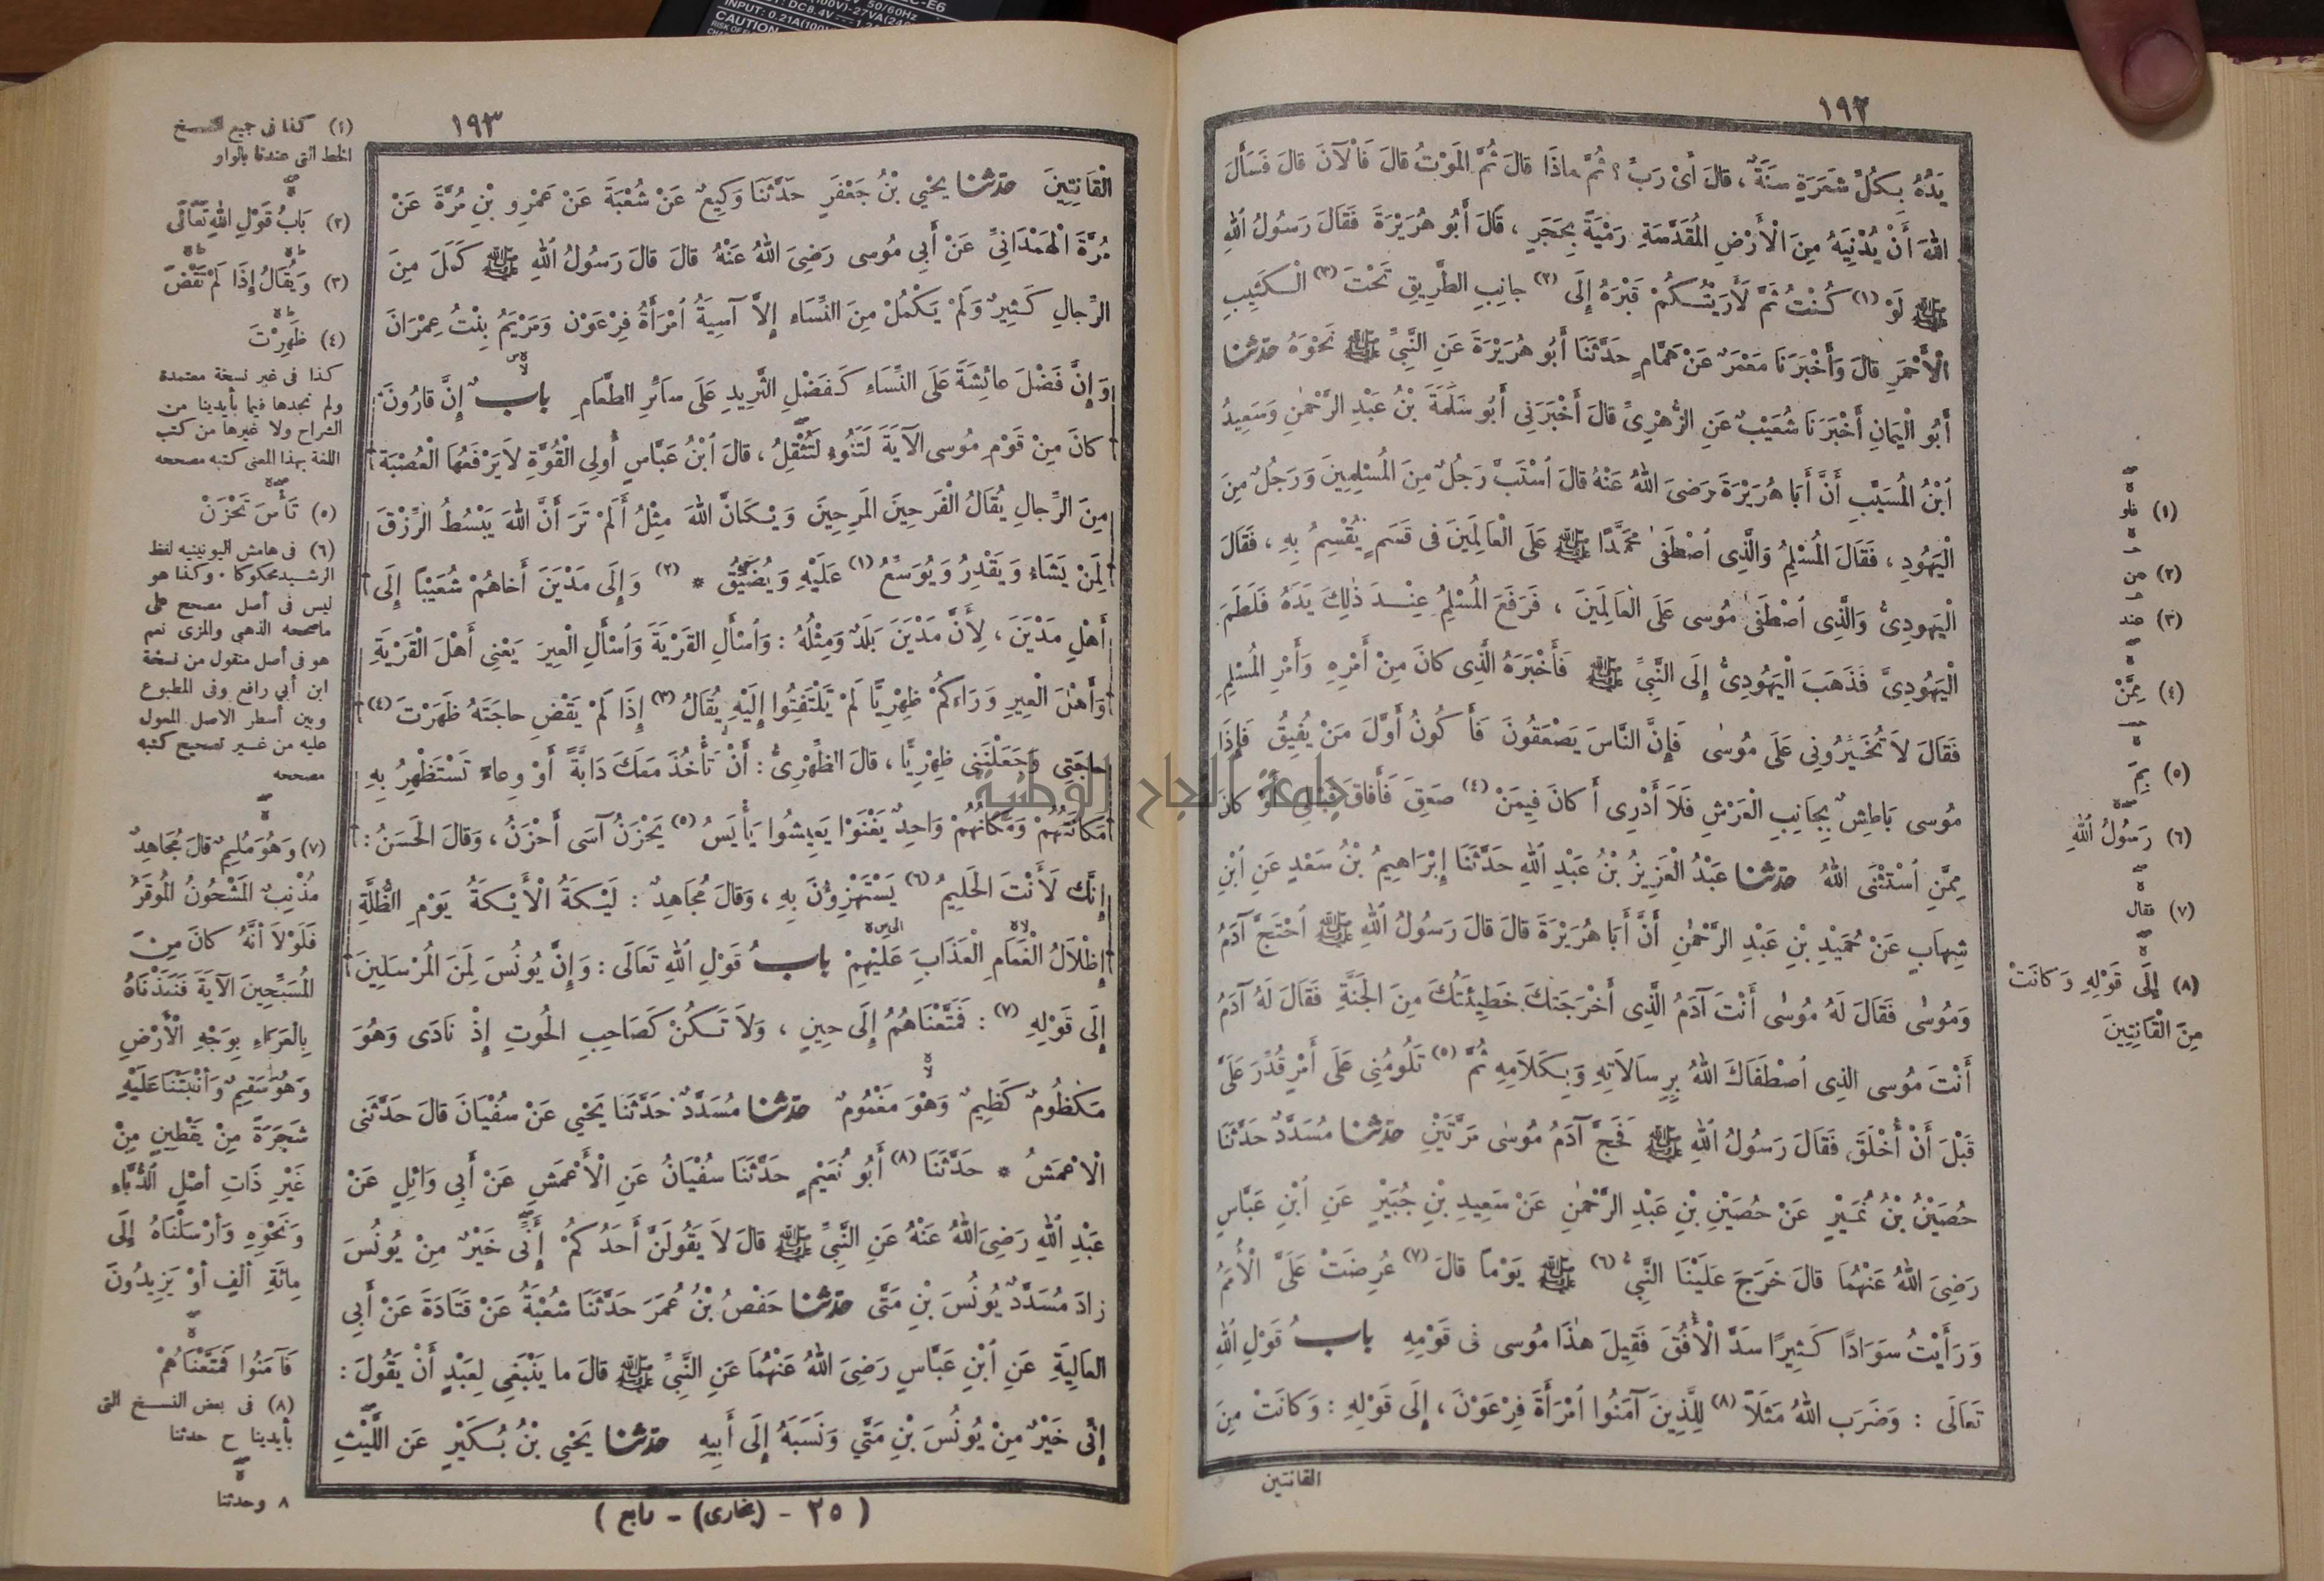 ١٩٢
يَدُهُ بِكُلِّ شَعَرَةٍ سَنَةٌ ، قالَ أَىْ رَبِّ ؟ ثُمَّ ماذَا قالَ ثُمَّ المَوْتُ قالَ فَالْآنَ قالَ فَسَأَلَ
اللهَ أَنْ يُدْنِيَهُ مِنَ الْأَرْضِ المُقَدَّسَةِ رَمْيَةً بِحَجَرٍ ، قَالَ أَبُو هُرَيْرَةَ فَقَالَ رَسُولُ اللهِ
ﷺ لَوْ (١) كُنْتُ ثَمَّ لَأَرَيْتُكُمْ قَبْرَهُ إِلَى (٢) جانِبِ الطَّرِيقِ تَحْتَ (٣) الْكَثِيبِ
الْأَحْمَرِ قالَ وَأَخْبَرَنَا مَعْمَرٌ عَنْ هَمَّامٍ حَدَّثَنَا أَبُو هُرَيْرَةَ عَنِ النَّبِيِّ ﷺ نَحْوَهُ حَدَّثَنَا
أَبُو الْيَمَانِ أَخْبَرَنَا شُعَيْبٌ عَنِ الزُّهْرِىِّ قالَ أَخْبَرَنِى أَبُو سَلَمَةَ بْنُ عَبْدِ الرَّحْمٰنِ وَسَعِيدُ
ابْنُ المُسَيَّبِ أَنَّ أَبَا هُرَيْرَةَ رَضِىَ اللهُ عَنْهُ قالَ اسْتَبَّ رَجُلٌ مِنَ المُسْلِمِينَ وَرَجُلٌ مِنَ
الْيَهُودِ ، فَقَالَ المُسْلِمُ وَالَّذِى اصْطَفَى مُحَمَّدًا ﷺ عَلَى الْعَالَمِينَ فى قَسَمٍ يُقْسِمُ بِهِ ، فَقَالَ
الْيَهُودِىُّ وَالَّذِى اصْطَفَى مُوسى عَلَى الْعَالَمِينَ ، فَرَفَعَ المُسْلِمُ عِنْدَ ذٰلِكَ يَدَهُ فَلَطَمَ
الْيَهُودِىَّ فَذَهَبَ الْيَهُودِىُّ إِلَى النَّبِيِّ ﷺ فَأَخْبَرَهُ الَّذِى كانَ مِنْ أَمْرِهِ وَأَمْرِ المُسْلِمِ
فَقَالَ لاَ تُخَيِّرُونِى عَلَى مُوسٰى فَإِنَّ النَّاسَ يَصْعَقُونَ فَأَكُونُ أَوَّلَ مَنْ يُفِيقُ فَإِذَا
مُوسى بَاطِشٌ بِجَانِبِ الْعَرْشِ فَلاَ أَدْرِى أَكانَ فِيمَنْ (٤) صَعِقَ فَأَفاقَ قَبْلِى أَوْ كانَ
مِمَّنِ اسْتَثْنَى اللهُ حَدَّثَنَا عَبْدُ الْعَزِيزِ بْنُ عَبْدِ اللهِ حَدَّثَنَا إِبْرَاهِيمُ بْنُ سَعْدٍ عَنِ ابْنِ
شِهَابٍ عَنْ حُمَيْدِ بْنِ عَبْدِ الرَّحْمٰنِ أَنَّ أَبَا هُرَيْرَةَ قالَ قالَ رَسُولُ اللهِ ﷺ احْتَجَّ آدَمُ
وَمُوسٰى فَقَالَ لَهُ مُوسٰى أَنْتَ آدَمُ الَّذِى أَخْرَجَتْكَ خَطِيئَتُكَ مِنَ الْجَنَّةِ فَقَالَ لَهُ آدَمُ
أَنْتَ مُوسى الذِى اصْطَفَاكَ اللهُ بِرِسَالاَتِهِ وَبِكَلاَمِهِ ثُمَّ (٥) تَلُومُنِى عَلَى أَمْرٍ قُدِّرَ عَلَىَّ
قَبْلَ أَنْ أُخْلَقَ فَقَالَ رَسُولُ اللهِ ﷺ فَحَجَّ آدَمُ مُوسٰى مَرَّتَيْنِ حَدَّثَنَا مُسَدَّدٌ حَدَّثَنَا
حُصَيْنُ بْنُ نُمَيْرٍ عَنْ حُصَيْنِ بْنِ عَبْدِ الرَّحْمٰنِ عَنْ سَعِيدِ بْنِ جُبَيْرٍ عَنِ ابْنِ عَبَّاسٍ
رَضِىَ اللهُ عَنْهُمَا قالَ خَرَجَ عَلَيْنَا النَّبِيُّ (٦) ﷺ يَوْمًا قالَ (٧) عُرِضَتْ عَلَىَّ الْأُمَمُ
وَرَأَيْتُ سَوَادًا كَثِيرًا سَدَّ الْأُفُقَ فَقِيلَ هٰذَا مُوسى فى قَوْمِهِ بابُ قَوْلِ اللهِ
تَعَالَى : وَضَرَبَ اللهُ مَثَلاً (٨) لِلَّذِينَ آمَنُوا امْرَأَةَ فِرْعَوْنَ ، إِلَى قَوْلِهِ : وَكانَتْ مِنَ
القانتين
(١) فلو
(٢) من
(٣) عند
(٤) مِمَّنْ
(٥) بِمَ
(٦) رَسُولُ اللهِ
(٧) فقال
(٨) إِلَى قَوْلِهِ وَكانَتْ
مِنَ الْقَانِتِينَ
١٩٣
الْقَانِتِينَ حَدَّثَنَا يَحْيىٰ بْنُ جَعْفَرٍ حَدَّثَنَا وَكِيعٌ عَنْ شُعْبَةَ عَنْ عَمْرِو بْنِ مُرَّةَ عَنْ
مُرَّةَ الْهَمْدَانِىِّ عَنْ أَبِى مُوسى رَضِىَ اللهُ عَنْهُ قالَ قالَ رَسُولُ اللهِ ﷺ كَمَلَ مِنَ
الرِّجالِ كَثِيرٌ وَلَمْ يَكْمُلْ مِنَ النِّسَاءِ إِلاَّ آسِيَةُ امْرَأَةُ فِرْعَوْنَ وَمَرْيَمُ بِنْتُ عِمْرَانَ
وَإِنَّ فَضْلَ عائِشَةَ عَلَى النِّسَاءِ كَفَضْلِ الثَّرِيدِ عَلَى سَائِرِ الطَّعَامِ بابٌ إِنَّ قارُونَ
كانَ مِنْ قَوْمِ مُوسى الآيَةَ لَتَنُوءُ لَتُثْقِلُ ، قالَ ابْنُ عَبَّاسٍ أُولِى الْقُوَّةِ لاَ يَرْفَعُهَا الْعُصْبَةُ
مِنَ الرِّجالِ يُقَالُ الْفَرِحِينَ المَرِحِينَ وَيْكَأَنَّ اللهَ مِثْلُ أَلَمْ تَرَ أَنَّ اللهَ يَبْسُطُ الرِّزْقَ
لِمَنْ يَشَاءُ وَيَقْدِرُ وَيُوَسِّعُ (١) عَلَيْهِ وَيُضَيِّقُ * (٢) وَإِلَى مَدْيَنَ أَخاهُمْ شُعَيْبًا إِلَى
أَهْلِ مَدْيَنَ ، لِأَنَّ مَدْيَنَ بَلَدٌ وَمِثْلُهُ : وَاسْأَلِ القَرْيَةَ وَاسْأَلِ الْعِيرَ يَعْنِى أَهْلَ الْقَرْيَةِ
وَأَهْلَ الْعِيرِ وَرَاءَكُمْ ظِهْرِيًّا لَمْ يَلْتَفِتُوا إِلَيْهِ يُقَالُ (٣) إِذَا لَمْ يَقْضِ حاجَتَهُ ظَهَرْتَ (٤)
حاجَتِى وَجَعَلْتَنِى ظِهْرِيًّا ، قالَ الظِّهْرِىُّ : أَنْ تَأْخُذَ مَعَكَ دَابَّةً أَوْ وِعاءً تَسْتَظْهِرُ بِهِ
مَكانَتُهُمْ وَمَكانُهُمْ وَاحِدٌ يَغْنَوْا يَعِيشُوا يَأْيَسُ (٥) يَحْزَنُ آسَى أَحْزَنُ ، وَقالَ الحَسَنُ :
إِنَّكَ لَأَنْتَ الحَلِيمُ (٦) يَسْتَهْزِؤُنَ بِهِ ، وَقالَ مُجَاهِدٌ : لَيْكَةُ الْأَيْكَةُ يَوْمِ الظُّلَّةِ
إِظْلاَلُ الْغَمَامِ الْعَذَابَ عَلَيْهِمْ بابُ قَوْلِ اللهِ تَعَالَى : وَإِنَّ يُونُسَ لَمِنَ المُرْسَلِينَ
إِلَى قَوْلِهِ (٧) : فَمَتَّعْنَاهُمْ إِلَى حِينٍ ، وَلاَ تَكُنْ كَصَاحِبِ الحُوتِ إِذْ نَادَى وَهُوَ
مَكْظُومٌ كَظِيمٌ وَهْوَ مَغْمُومٌ حَدَّثَنَا مُسَدَّدٌ حَدَّثَنَا يَحْيىٰ عَنْ سُفْيَانَ قالَ حَدَّثَنِى
الْأَعْمَشُ * حَدَّثَنَا (٨) أَبُو نُعَيْمٍ حَدَّثَنَا سُفْيَانُ عَنِ الْأَعْمَشِ عَنْ أَبِى وَائِلٍ عَنْ
عَبْدِ اللهِ رَضِىَ اللهُ عَنْهُ عَنِ النَّبِيِّ ﷺ قالَ لاَ يَقُولَنَّ أَحَدُكُمْ إِنِّى خَيْرٌ مِنْ يُونُسَ
زادَ مُسَدَّدٌ يُونُسَ بْنِ مَتَّى حَدَّثَنَا حَفْصُ بْنُ عُمَرَ حَدَّثَنَا شُعْبَةُ عَنْ قَتَادَةَ عَنْ أَبِى
العَالِيَةِ عَنِ ابْنِ عَبَّاسٍ رَضِىَ اللهُ عَنْهُمَا عَنِ النَّبِيِّ ﷺ قالَ ما يَنْبَغِى لِعَبْدٍ أَنْ يَقُولَ :
إِنِّى خَيْرٌ مِنْ يُونُسَ بْنِ مَتَّى وَنَسَبَهُ إِلَى أَبِيهِ حَدَّثَنَا يَحْيىٰ بْنُ بُكَيْرٍ عَنِ اللَّيْثِ
( ٢٥ - (بخارى) - رابع )
(١) كذا فى جميع النسخ
الخط التى عندنا بالواو
(٢) بَابُ قَوْلِ اللهِ تَعَالَى
(٣) وَيُقَالُ إِذَا لَمْ تَقْضِ
(٤) ظَهِرْتَ
كذا فى غير نسخة معتمدة
ولم نجدها فيما بأيدينا من
الشراح ولا غيرها من كتب
اللغة بهذا المعنى كتبه مصححه
(٥) تَأْسَ تَحْزَنْ
(٦) فى هامش اليونينيه لفظ
الرشيد محكوكا . وكذا هو
ليس فى أصل مصحح على
ماصححه الذهبى والمزى نعم
هو فى أصل منقول من نسخة
ابن أبي رافع وفى المطبوع
وبين أسطر الاصل المعول
عليه من غير تصحيح كتبه
مصححه
(٧) وَهُوَ مُلِيمٌ قالَ مُجَاهِدٌ
مُذْنِبٌ المَشْحُونُ المُوقَرُ
فَلَوْلاَ أَنَّهُ كانَ مِنَ
المُسَبِّحِينَ الآيَةَ فَنَبَذْنَاهُ
بِالْعَرَاءِ بِوَجْهِ الْأَرْضِ
وَهُوَ سَقِيمٌ وَأَنْبَتْنَا عَلَيْهِ
شَجَرَةً مِنْ يَقْطِينٍ مِنْ
غَيْرِ ذَاتِ أَصْلٍ الدُّبَّاءِ
وَنَحْوِهِ وَأَرْسَلْنَاهُ إِلَى
مِائَةِ أَلْفٍ أَوْ يَزِيدُونَ
فَآمَنُوا فَمَتَّعْنَاهُمْ
(٨) فى بعض النسخ التى
بأيدينا ح حدثنا
٨ وحدثنا
جامعة النجاح الوطنية
50/60Hz
INPUT: 0.21A(100V)-27VA(240V)
DC8.4V
CAUTION